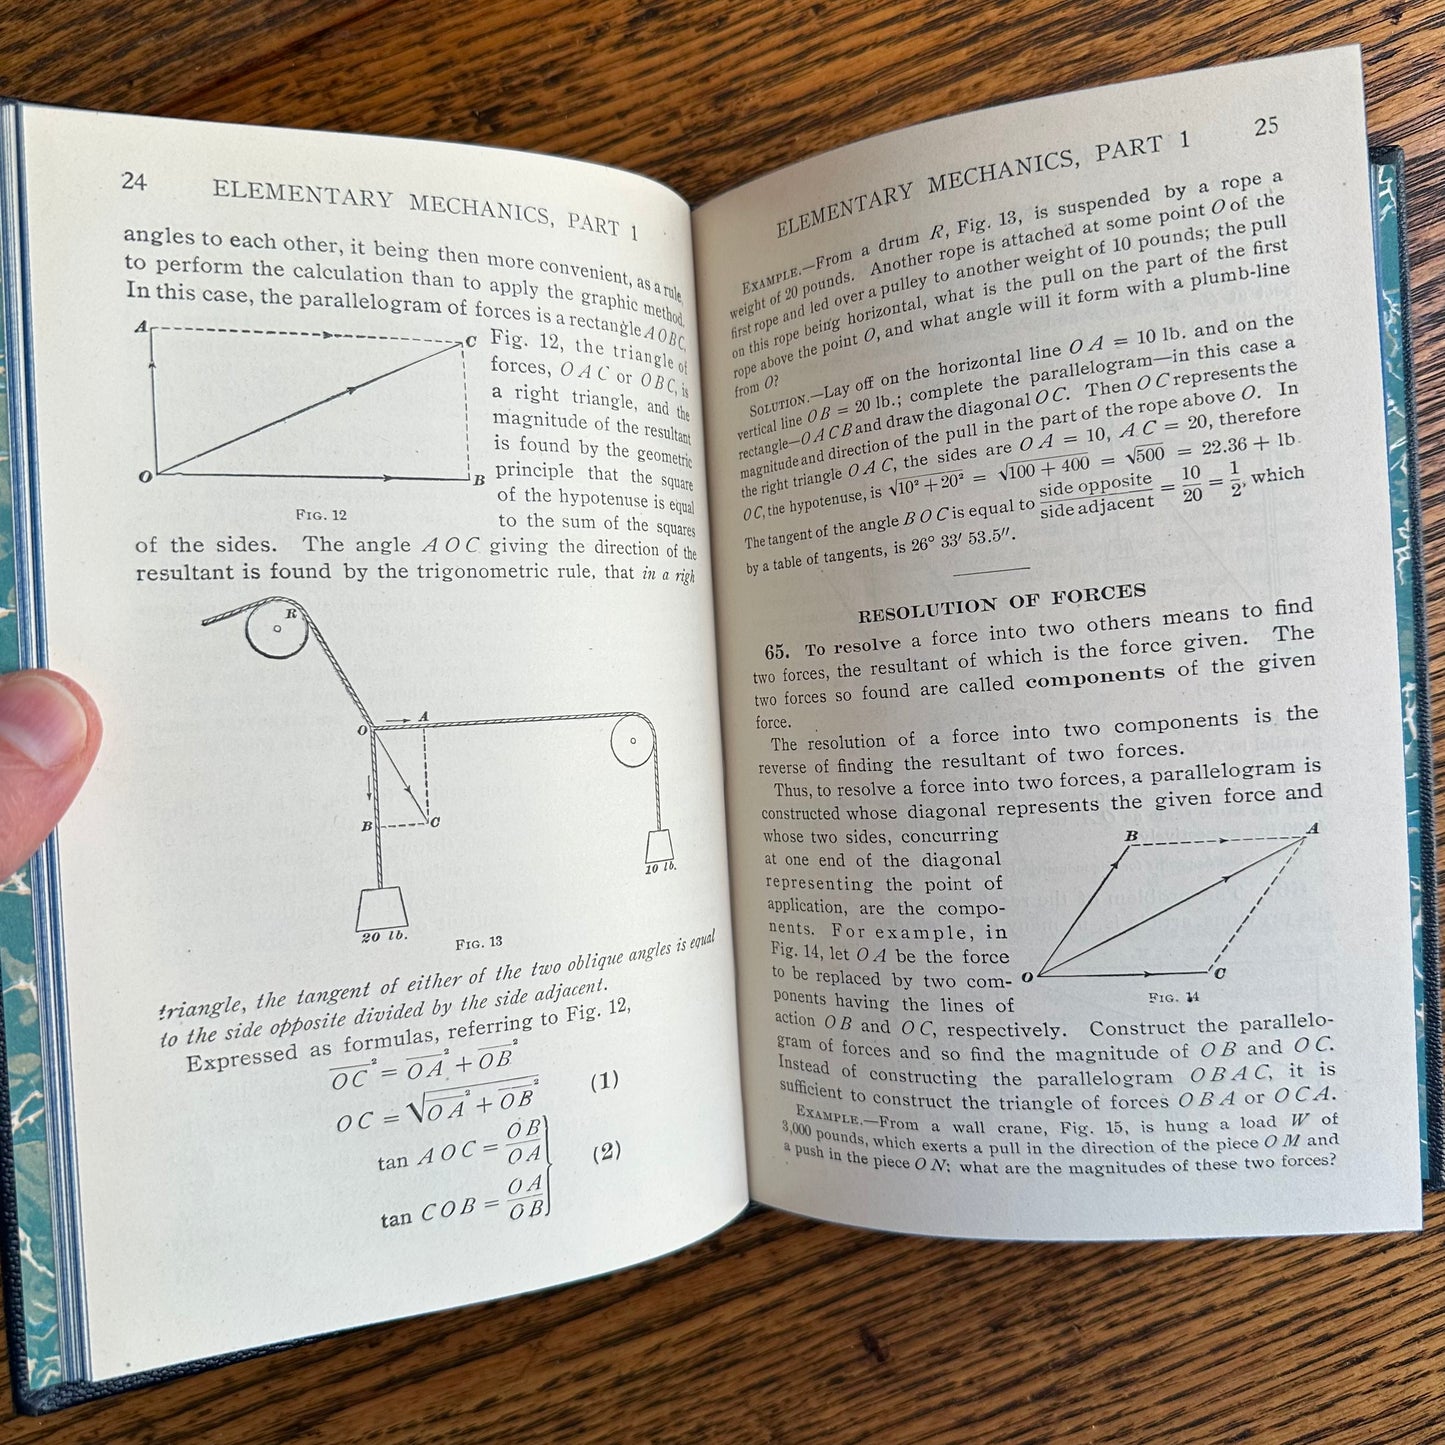 24 ELEMENTARY MECHANICS, PART 1
angles to each other, it being then more convenient, as a rule,
to perform the calculation than to apply the graphic method.
In this case, the parallelogram of forces is a rectangle A O B C,
A C O B
FIG. 12
Fig. 12, the triangle of
forces, O A C or O B C, is
a right triangle, and the
magnitude of the resultant
is found by the geometric
principle that the square
of the hypotenuse is equal
to the sum of the squares
of the sides. The angle A O C giving the direction of the
resultant is found by the trigonometric rule, that in a righ
R
O A
B C
10 lb.
20 lb.
FIG. 13
triangle, the tangent of either of the two oblique angles is equal
to the side opposite divided by the side adjacent.
Expressed as formulas, referring to Fig. 12,
OC² = OA² + OB²
OC = √OA² + OB² (1)
tan A O C = OB/OA
(2)
tan C O B = OA/OB
ELEMENTARY MECHANICS, PART 1 25
EXAMPLE.—From a drum R, Fig. 13, is suspended by a rope a
weight of 20 pounds. Another rope is attached at some point O of the
first rope and led over a pulley to another weight of 10 pounds; the pull
on this rope being horizontal, what is the pull on the part of the first
rope above the point O, and what angle will it form with a plumb-line
from O?
SOLUTION.—Lay off on the horizontal line O A = 10 lb. and on the
vertical line O B = 20 lb.; complete the parallelogram—in this case a
rectangle—O A C B and draw the diagonal O C. Then O C represents the
magnitude and direction of the pull in the part of the rope above O. In
the right triangle O A C, the sides are O A = 10, A C = 20, therefore
O C, the hypotenuse, is √10² + 20² = √100 + 400 = √500 = 22.36 + lb.
The tangent of the angle B O C is equal to side opposite/side adjacent = 10/20 = 1/2, which
by a table of tangents, is 26° 33′ 53.5″.
RESOLUTION OF FORCES
65. To resolve a force into two others means to find
two forces, the resultant of which is the force given. The
two forces so found are called components of the given
force.
The resolution of a force into two components is the
reverse of finding the resultant of two forces.
Thus, to resolve a force into two forces, a parallelogram is
constructed whose diagonal represents the given force and
whose two sides, concurring
at one end of the diagonal
representing the point of
application, are the compo-
nents. For example, in
Fig. 14, let O A be the force
to be replaced by two com-
ponents having the lines of
B A
O C
FIG. 14
action O B and O C, respectively. Construct the parallelo-
gram of forces and so find the magnitude of O B and O C.
Instead of constructing the parallelogram O B A C, it is
sufficient to construct the triangle of forces O B A or O C A.
EXAMPLE.—From a wall crane, Fig. 15, is hung a load W of
3,000 pounds, which exerts a pull in the direction of the piece O M and
a push in the piece O N; what are the magnitudes of these two forces?